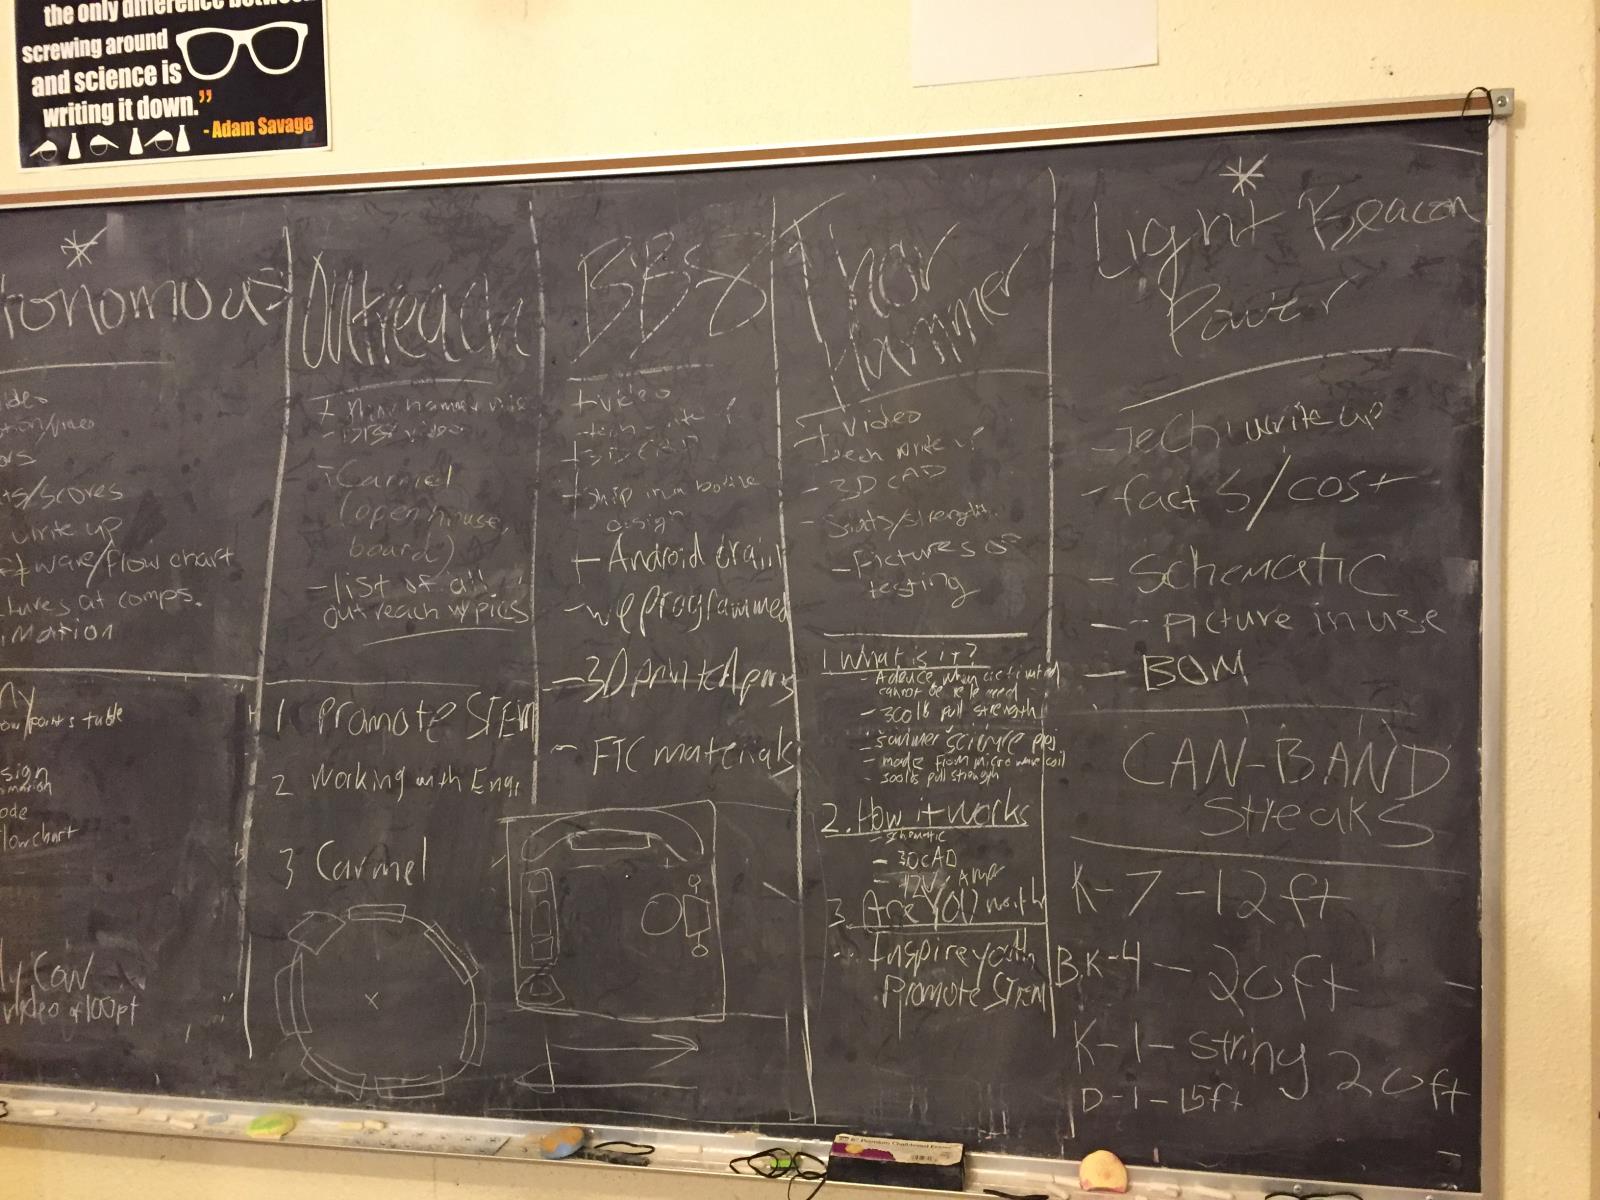 the only difference between
screwing around
and science is
writing it down.”
- Adam Savage
onomous
ts/scores
write up
ware/flow chart
tures at comps.
mation
table
sign
ode
lowchart
Can
video
Outreach
video
(open house,
board)
- list of all
outreach w/pics
1 Promote STEM
2 Working with Engr.
3 Carmel
BB8
+ video
+ ship in a bottle
design
+ Android
- we programmed
- 3D printed
- FTC materials
Thor
Hammer
+ video
- tech write up
- 3D CAD
- Stats/strength
- Pictures of
testing
1. What is it?
- A device when activated
cannot be released
- 300lb pull strength
- summer science proj
- made from microwave coil
- 300lb pull strength
2. How it works
- schematic
- 3D CAD
- 12V / Amp
3. Are YOU worth
- Inspire youth
Promote STEM
Light Beacon
Power
- Tech write up
- facts/cost
- Schematic
- - Picture in use
- BOM
CAN-BAND
Streaks
K-7-12ft
B.K-4-20ft
K-1-string 20ft
D-1-15ft